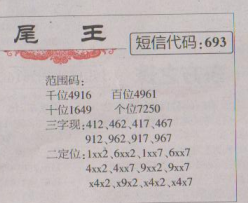 尾 王
短信代码:693
范围码:
千位4916 百位4961
十位1649 个位7250
三字现:412、462、417、467
912、962、917、967
二定位:1xx2、6xx2、1xx7、6xx7
4xx2、4xx7、9xx2、9xx7
x4x2、x9x2、x4x2、x4x7